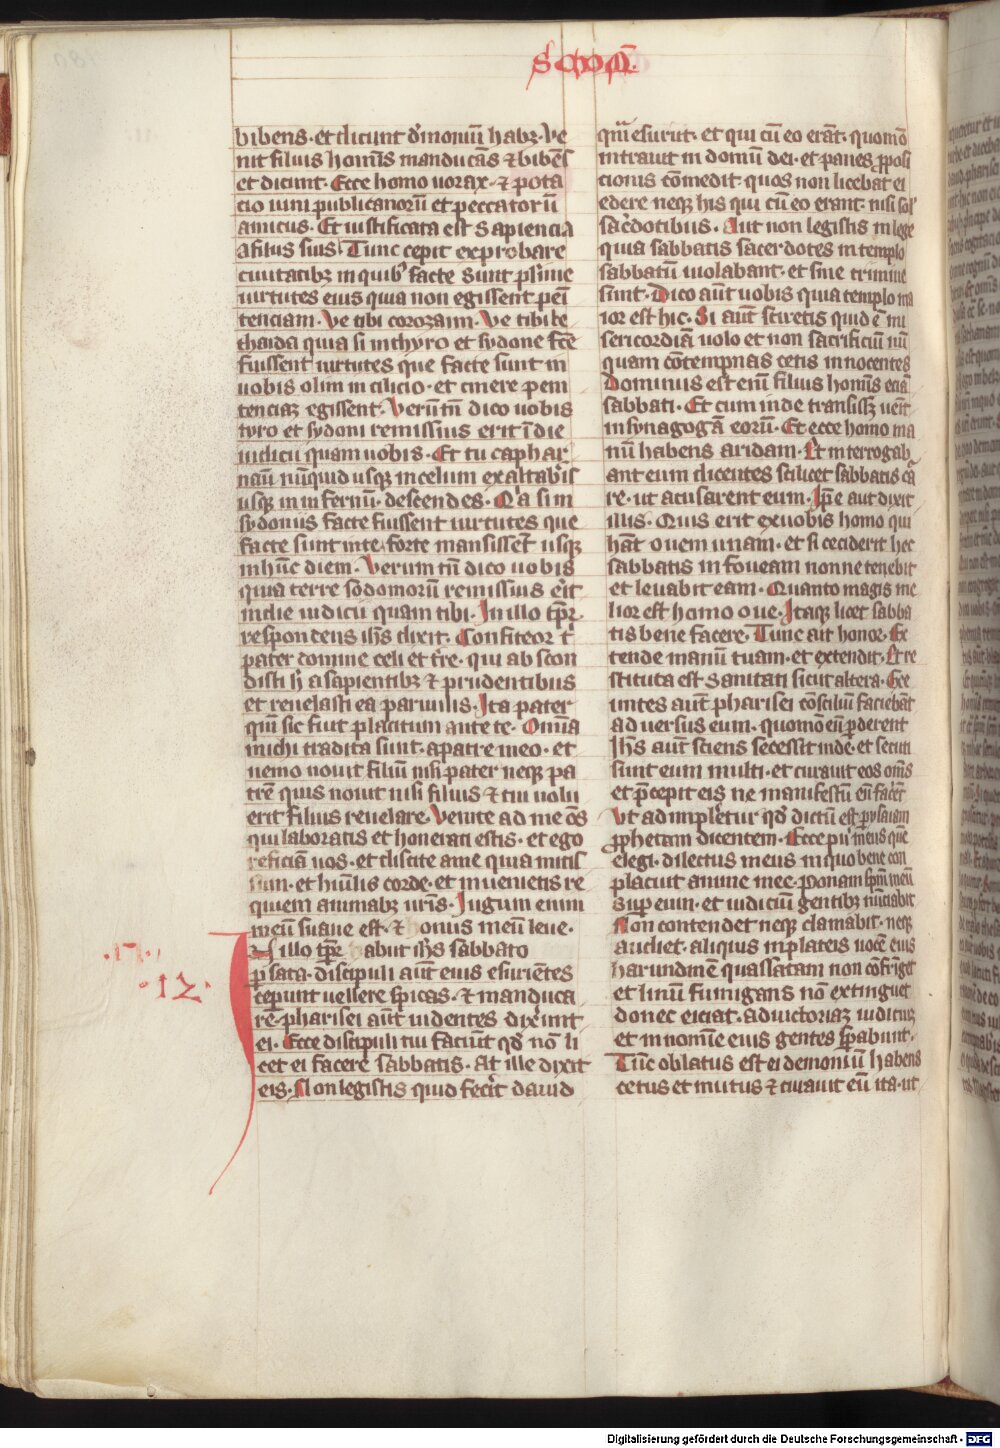 bibens · et dicunt demoniū habꝫ · Ve
nit filius hoīs manducās ⁊ bibēs
et dicunt · Ecce homo uorax · ⁊ pota
cio uini publicanorū et peccatorū
amicus · Et iustificata est Sapiencia
a filiis suis Tunc cepit exprobare
ciuitatibꝫ in quibꝰ facte sunt plīme
uirtutes eius quia non egissent peni
tenciam · Ve tibi corozaim · Ve tibi be
thaida quia si in thyro et sydone fcē
fuissent uirtutes que facte sunt in
uobis olim in cilicio · et cinere peni
tenciaꝫ egissent · Verūtn̄ dico uobis
tyro et sydoni remissius erit ī die
iudicii quam uobis · Et tu caphar
naū nūquid usqꝫ in celum exaltab̄is
usqꝫ in infernū · descendes · Q̇a si in
sydoniis facte fuissent uirtutes que
facte sunt in te forte mansissēt usqꝫ
in hūc diem · Verum tn̄ dico uobis
quia terre sodomorū remissius erit
in die iudicii quam tibi · In illo tp̄r
respondens ih̄s dixit · Confiteor t̄
pater domine celi et tr̄e · qui abscon
disti h̄ a sapientibꝫ ⁊ prudentibus
et reuelasti ea paruulis · Ita pater
qm̄ sic fuit placitum ante te · Omīa
michi tradita sunt · a patre meo · et
nemo nouit filiū nisi pater neqꝫ pa
trē quis nouit nisi filius ⁊ cui uolu
erit filius reuelare · Venite ad me om̄s
qui laboratis et honerati estis · et ego
reficiā uos · et discite a me quia mitis
sum · et humīlis corde · et inuenietis re
quiem animabꝫ ur̄is · Iugum enim
meū suaue est · ⁊ onus meū leue ·
In illo tp̄r abiit ih̄s sabbato
p sata · discipuli aut̄ eius esurientes
ceperunt uellere spicas · ⁊ manduca
rē · pharisei aut̄ uidentes dixerunt
ei · Ecce discipuli tui faciūt qd̄ nō li
cet ei facere sabbatis · At ille dixit
eis · Non legistis quid fecit dauid
· 12 ·
qn̄ esuriit · et qui cū eo erāt · quomō
intrauit in domū dei · et panes ꝓposi
cionis cōmedit · quos non licebat ei
edere neqꝫ his qui cū eo erant · nisi sol
sac̄dotibus · Aut non legistis in lege
quia sabbatis sacerdotes in templo
sabbatū uiolabant · et sine crimine
sunt · Dico aut̄ uobis quia templo ma
ior est hic · Si aut̄ sciretis quid ē mi
sericordiā uolo et non sacrificiū nū
quam cōtempnas cetis innocentes
Dominus est eni filius homīs eciā
sabbati · Et cum inde transissꝫ uenit
in synagogā eorū · Et ecce homo ma
nū habens aridam · Et interrogab
ant eum dicentes si licet sabbatis cu
re · ut acusarent eum · Ip̄e aut dixit
illis · Quis erit ex uobis homo qui
hāt ouem unam · et si ceciderit hec
sabbatis in foueam nonne tenebit
et leuabit eam · Quanto magis me
lior est homo oue · Itaqꝫ licet sabba
tis bene facere · Tunc ait honor · Ex
tende manū tuam · et extendit · Et re
stituta est sanitati sicut altera · Exe
untes aut̄ pharisei cōsciliū faciebāt
aduersus eum · quomō eū perderent
Ih̄s aut̄ sciens secessit inde · et secuti
sunt eum multi · et curauit eos om̄s
et p̄cepit eis ne manifestū eū facer̄t
Vt adimpleretur qd̄ dictū est per ysaiam
ꝓphetam dicentem · Ecce pu meus quē
elegi · dilectus meus in quo bene con
placuit anime mee · Ponam sp̄m meū
super eum · et iudiciū gentibꝫ nūciabit
Non contendet neqꝫ clamabit · neqꝫ
audiet · aliquis in plateis uocē eius
harundinē quassatam non cōfrīget
et linū fumigans nō extinguet
donec eiciat · ad uictoriaꝫ iudiciuꝫ
et in nomīe eius gentes sperabunt ·
Tūc oblatus est ei demoniū habens
cetus et mutus ⁊ curauit eū ita · ut
Digitalisierung gefördert durch die Deutsche Forschungsgemeinschaft - DFG